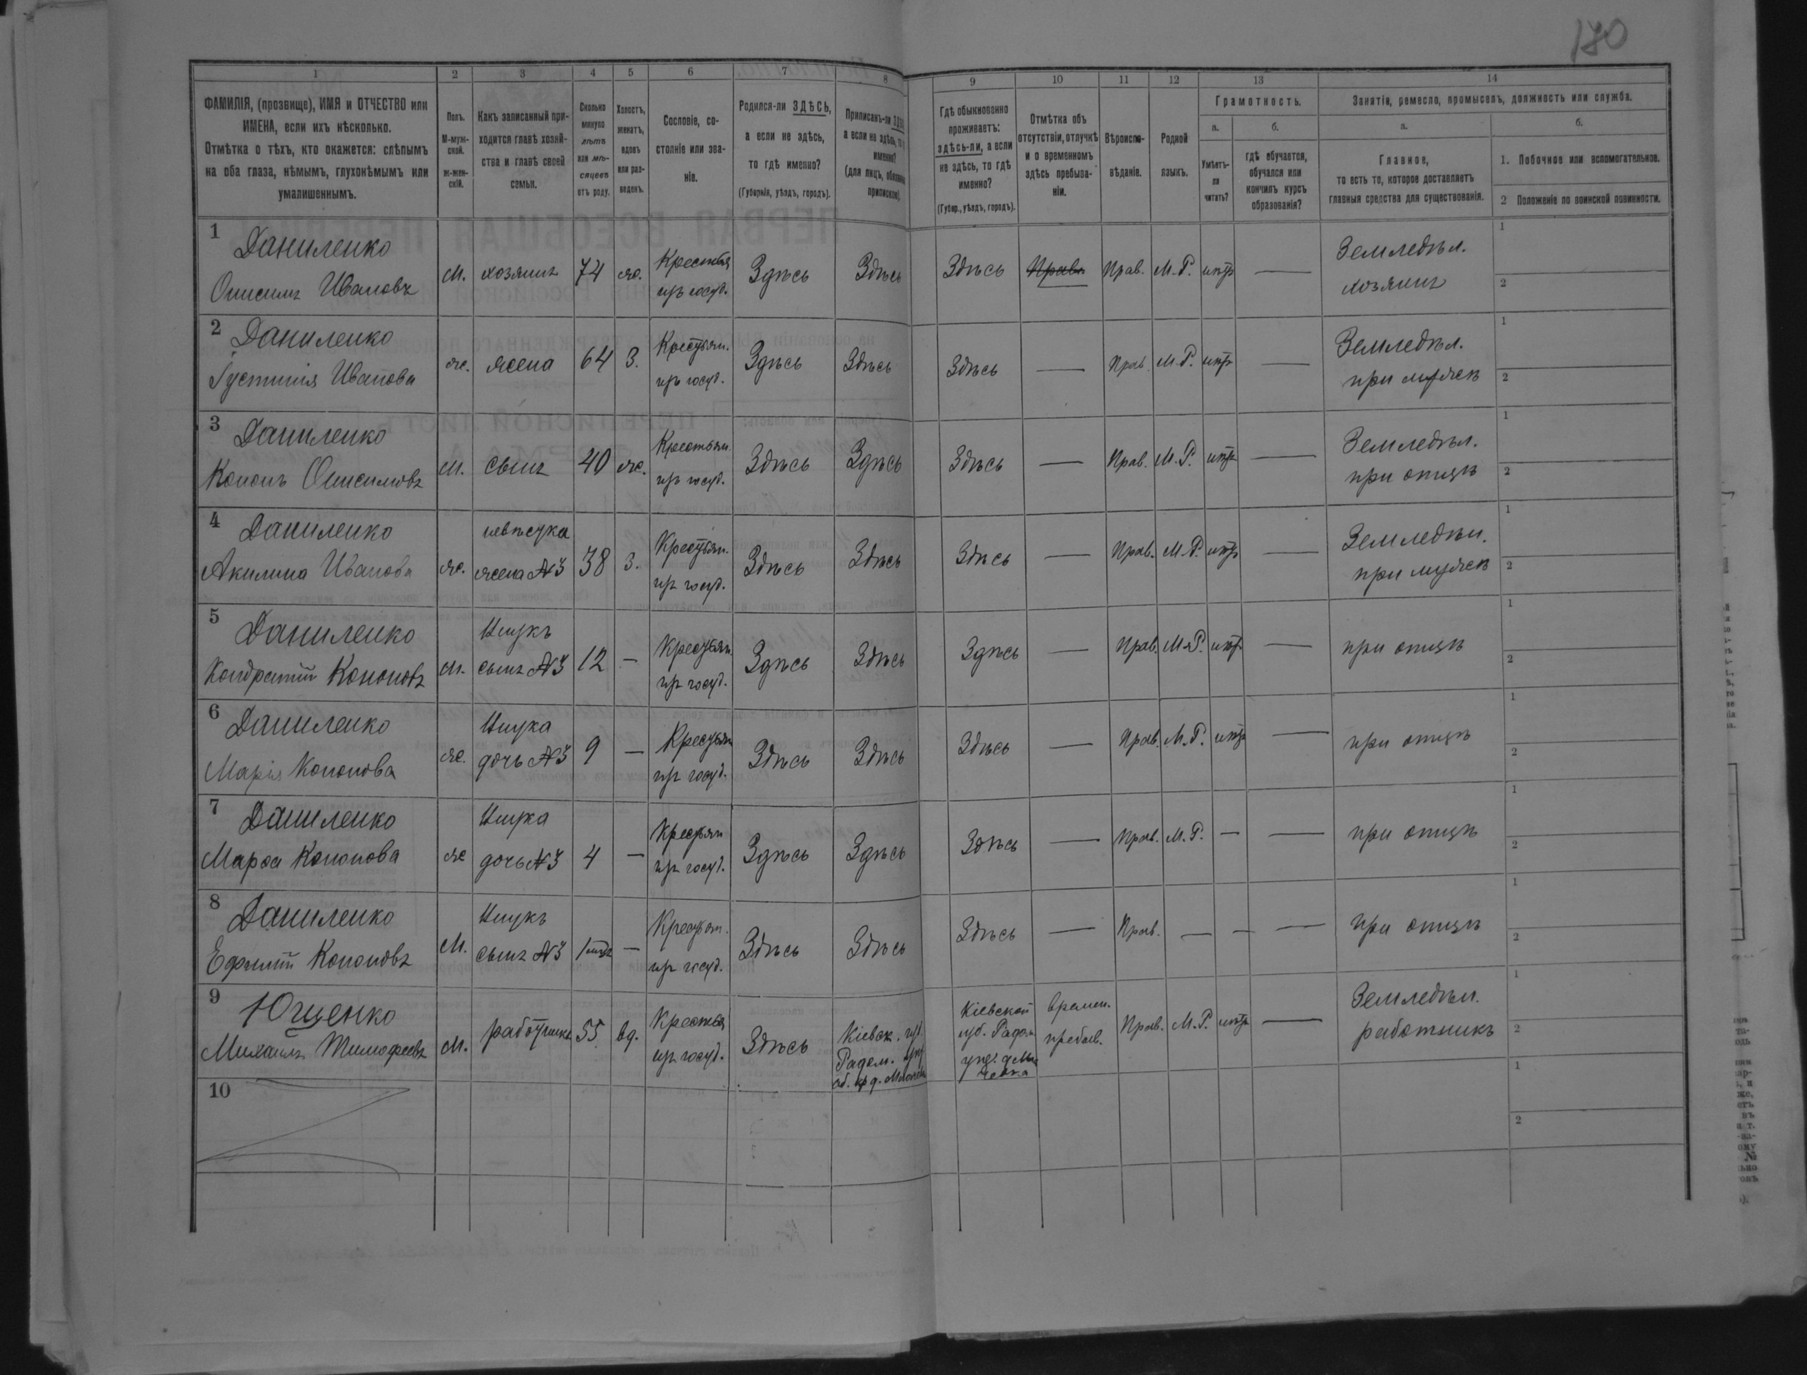 170
1 2 3 4 5 6 7 8 9 10 11 12 13 14
ФАМИЛІЯ, (прозвище), ИМЯ и ОТЧЕСТВО или
ИМЕНА, если ихъ нѣсколько.
Отмѣтка о тѣхъ, кто окажется: слѣпымъ
на оба глаза, нѣмымъ, глухонѣмымъ или
умалишеннымъ.
Полъ.
М-муж-
ской.
ж-жен-
скій.
Какъ записанный при-
ходится главѣ хозяй-
ства и главѣ своей
семьи.
Сколько
минуло
лѣтъ
или мѣ-
сяцевъ
отъ роду.
Холостъ,
женатъ,
вдовъ
или раз-
веденъ.
Сословіе, со-
стояніе или зва-
ніе.
Родился-ли ЗДѢСЬ,
а если не здѣсь,
то гдѣ именно?
(Губернія, уѣздъ, городъ).
Приписанъ-ли
а если не здѣсь, то
именно?
(для лицъ,
Гдѣ обыкновенно
проживаетъ:
здѣсь-ли, а если
не здѣсь, то гдѣ
именно?
(Губер., уѣздъ, городъ).
Отмѣтка объ
отсутствіи, отлучкѣ
и о временномъ
здѣсь пребыва-
ніи.
Вѣроиспо-
вѣданіе.
Родной
языкъ.
Грамотность.
а.
Умѣетъ-
ли
читать?
б.
гдѣ обучается,
обучался или
кончилъ курсъ
образованія?
Занятіе, ремесло, промыселъ, должность или служба.
а.
Главное,
то есть то, которое доставляетъ
главныя средства для существованія.
б.
1. Побочное или вспомогательное.
2 Положеніе по воинской повинности.
1 Даниленко
Онисимъ Ивановъ
м. хозяинъ 74 ж. Крестья
изъ госуд. Здѣсь Здѣсь Здѣсь Прав. М.Р. нѣтъ —
Земледѣл.
хозяинъ
1
2
2 Даниленко
Іустинія Иванова
ж. жена 64 З. Крестьян.
изъ госуд. Здѣсь Здѣсь Здѣсь — Прав. М.Р. нѣтъ —
Земледѣл.
при мужѣ
1
2
3 Даниленко
Кононъ Онисимовъ
м. сынъ 40 ж. Крестьян
изъ госуд. Здѣсь Здѣсь Здѣсь — Прав. М.Р. нѣтъ —
Земледѣл.
при отцѣ
1
2
4 Даниленко
Акилина Иванова
ж. невѣстка
жена №3 38 З. Крестьян.
изъ госуд. Здѣсь Здѣсь Здѣсь — Прав. М.Р. нѣтъ —
Земледѣл.
при мужѣ
1
2
5 Даниленко
Кондратій Кононовъ
м. Внукъ
сынъ №3 12 — Крестьян
изъ госуд. Здѣсь Здѣсь Здѣсь — Прав. М.Р. нѣтъ —
при отцѣ
1
2
6 Даниленко
Марія Кононова
ж. Внука
дочь №3 9 — Крестьян
изъ госуд. Здѣсь Здѣсь Здѣсь — Прав. М.Р. нѣтъ —
при отцѣ
1
2
7 Даниленко
Марѳа Кононова
ж Внука
дочь №3 4 — Крестьян
изъ госуд. Здѣсь Здѣсь Здѣсь — Прав. М.Р. — —
при отцѣ
1
2
8 Даниленко
Ефимій Кононовъ
м. Внукъ
сынъ №3 — Крестьян.
изъ госуд. Здѣсь Здѣсь Здѣсь — Прав. — — —
при отцѣ
1
2
9 Ющенко
Михаилъ Тимофеевъ
м. работникъ 55 вд. Крестья
изъ госуд. Здѣсь
Кіевск. губ
Радом.
Кіевской
губ. Радом.
времен.
пребыв.
Прав. М.Р. нѣтъ —
Земледѣл.
работникъ
1
2
10
1
2